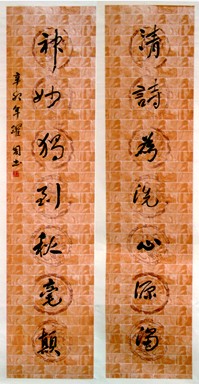 清詩為洗心源濁
神妙獨到秋毫顛
辛卯年躍